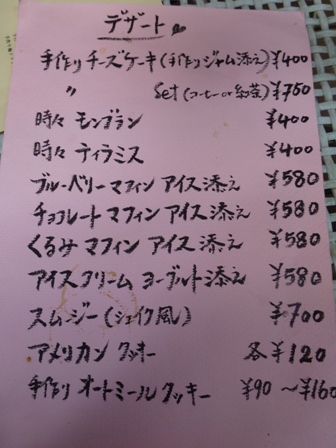 デザート
手作り チーズケーキ(手作りジャム添え) ¥400
〃 Set (コーヒー or 紅茶) ¥750
時々 モンブラン ¥400
時々 ティラミス ¥400
ブルーベリー マフィン アイス 添え ¥580
チョコレート マフィン アイス 添え ¥580
くるみ マフィン アイス 添え ¥580
アイスクリーム ヨーグルト添え ¥580
スムージー (シェイク風) ¥700
アメリカン クッキー 各¥120
手作り オートミール クッキー ¥90 〜¥160